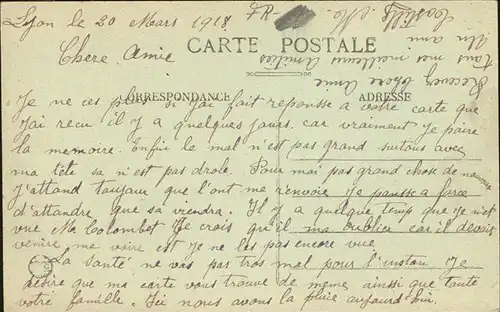 Lyon le 20 Mars 1918
Chere Amie
CARTE POSTALE
CORRESPONDANCE
ADRESSE
Je ne ces pas si j'ai fait reponsse a votre carte que
j'ai recu il y a quelques jours. car vraiment je paire
la memoire. Enfin le mal n'est pas grand surtous avec
ma tête sa n'est pas drole. Pour moi pas grand chose de nouveau
J'attand toujour que l'ont me renvoie je pansse a force
d'attandre que sa viendra. Il y a quelque temp que je n'est
vue Me Colombet je crois qu'il ma oublier car il devais
venire me voire est je ne les pas encore vue
La Santé ne vas pas tros mal pour l'instan je
désire que ma carte vous trouve de meme ainsi que toute
votre famille. Ici nous avons la pluie aujourd'hui.
Recevez chere Amie
tous mes meilleurs Amitiés
Un ami